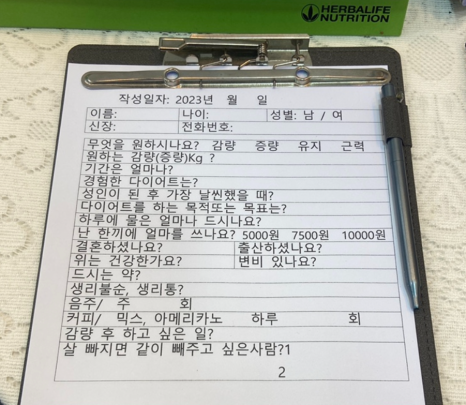 HERBALIFE
NUTRITION
작성일자: 2023년 월 일
이름: 나이: 성별: 남 / 여
신장: 전화번호:
무엇을 원하시나요? 감량 증량 유지 근력
원하는 감량(증량)Kg ?
기간은 얼마나?
경험한 다이어트는?
성인이 된 후 가장 날씬했을 때?
다이어트를 하는 목적또는 목표는?
하루에 물은 얼마나 드시나요?
난 한끼에 얼마를 쓰나요? 5000원 7500원 10000원
결혼하셨나요? 출산하셨나요?
위는 건강한가요? 변비 있나요?
드시는 약?
생리불순, 생리통?
음주/ 주 회
커피/ 믹스, 아메리카노 하루 회
감량 후 하고 싶은 일?
살 빠지면 같이 빼주고 싶은사람?1
2